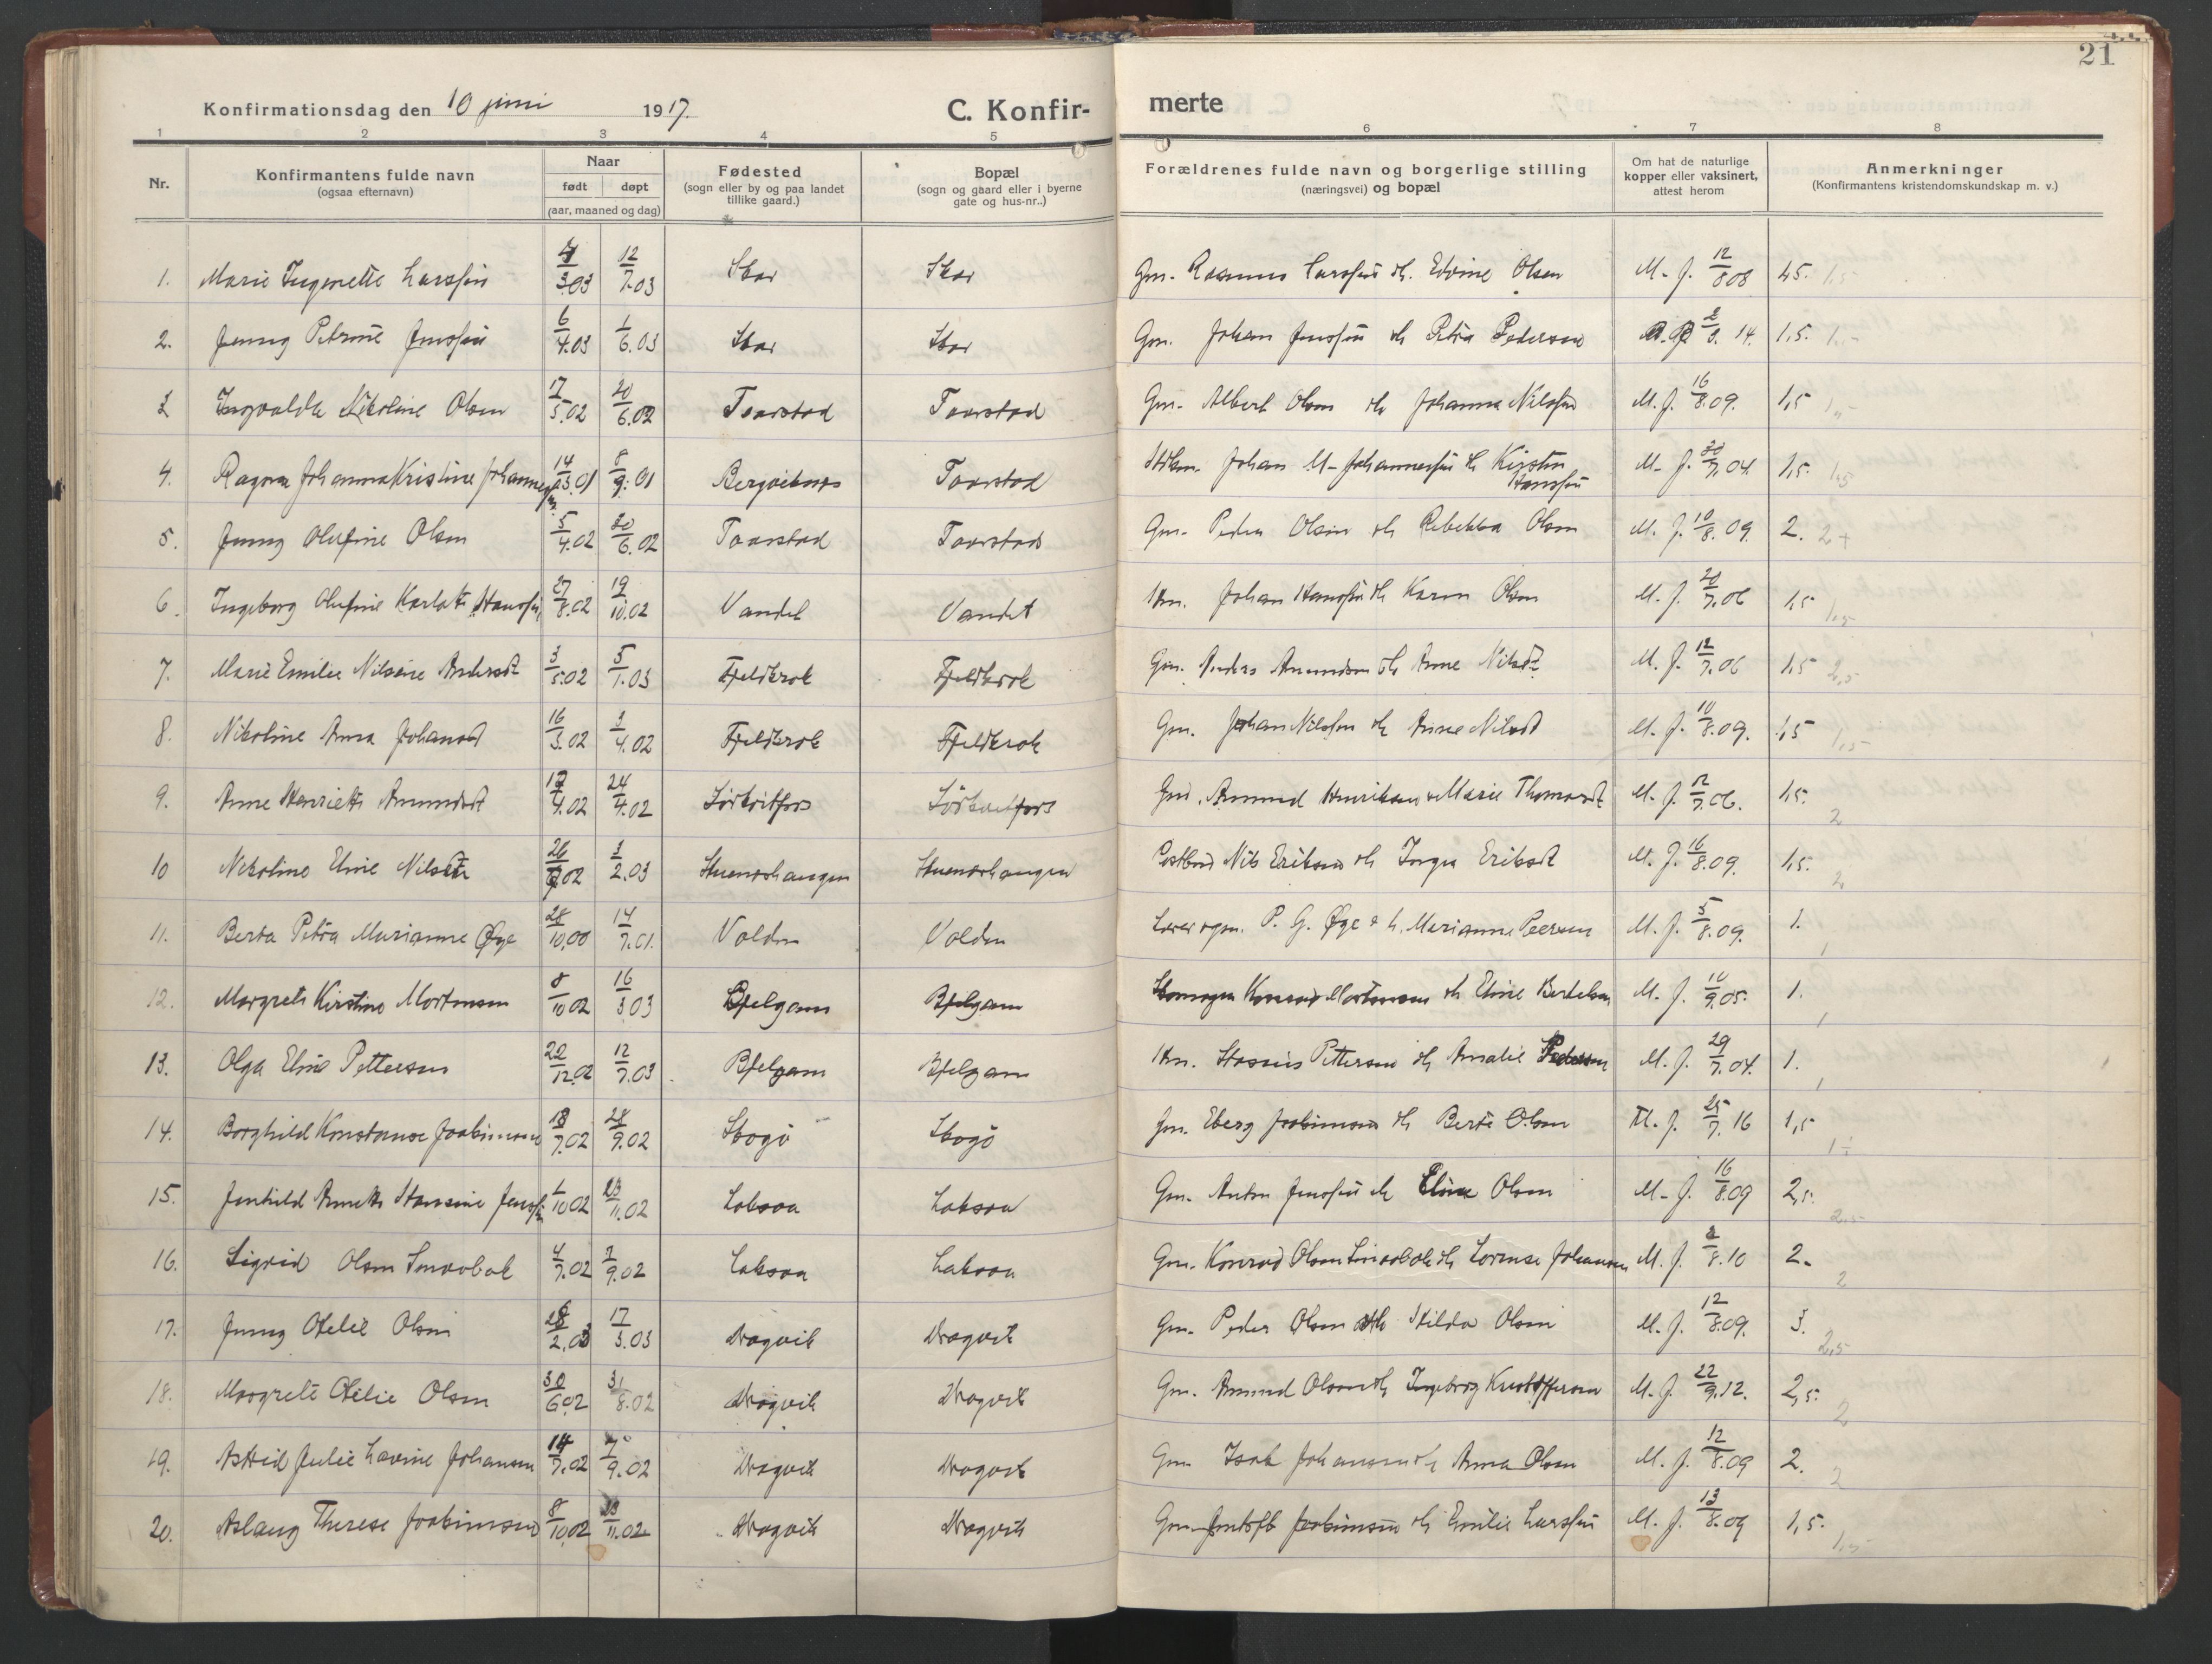 21
Konfirmationsdag den 10 juni 1917.
C. Konfir-
merte
1 2 3 4 5 6 7 8
Nr.
Konfirmantens fulde navn
(ogsaa efternavn)
Naar
født døpt
(aar, maaned og dag)
Fødested
(sogn eller by og paa landet
tillike gaard.)
Bopæl
(sogn og gaard eller i byerne
gate og hus-nr..)
Forældrenes fulde navn og borgerlige stilling
(næringsvei) og bopæl
Om hat de naturlige
kopper eller vaksinert,
attest herom
Anmerkninger
(Konfirmantens kristendomskundskap m. v.)
1. Marie Ingenette Larssen 4/3.03 12/7.03 Skar Skar Gm. Rasmus Larssen oh. Edvine Olsen M. J. 12/8 08 1,5. 1,5
2. Jenny Petrine Jenssen 6/4.03 1/6.03 Skar Skar Gm. Johan Jenssen oh Petra Pedersen 8. 14. 1.5.
3 Ingvalda Nikoline Olsen 17/5.02 20/6.02 Taarstad Taarstad Gm. Albert Olsen oh Johanna Nilssen M. J. 16/8.09. 1,5
4. Ragna Johanna Kristine Johannessen 14/3.01 8/9.01 Bergviknes Taarstad Johan M. Johannessen oh Kirstin Hanssen M. J. 30/7.04 1,5. 1,5
5. Jenny Olufine Olsen 5/4.02 20/6.02 Taarstad Taarstad Gm. Peder Olsen oh Rebekka Olsen M. J. 10/8.09 2. 2+
6. Ingeborg Olufine Karlotte Hanssen 27/8.02 19/10.02 Vandet Vandet Johan Hanssen oh Karen Olsen M. J. 20/7.06 1,5 1,5
7. Marie Emilie Nilsine Andersdt 3/5.02 5/1.03 Fjeldkrok Fjeldkrok Gm. Anders Amundsen oh Anne Nilsdt M. J. 12/7.06 1,5 2,5
8. Nikoline Anna Johansdt 16/3.02 3/4.02 Fjeldkrok Fjeldkrok Gm. Johan Nilssen oh Anne Nilsdt M. J. 10/8.09. 1,5 1,5
9. Anne Henriette Amundsdt 4.02 24/4.02 Gm. Amund Henriksen o Marie Thomasdt M. J. 12/7.06. 1,5. 2
10 Nikoline Eline Nilsdt 26/ 02 3/2.03 Stueneshaugen Stueneshaugen Postbud Nils Eriksen oh Inga Eriksdt M. J. 16/8.09. 1,5. 2
11. Berta Petra Marianne Øye 28/10.00 14/7.01. Volden Volden Lærer o gm. P. G. Øye o h. Marianne Peersen M. J. 5/8.09. 1. 1
12. Margrete Kirstine Mortensen 8/10 02 16/3 03 Bjelgam Bjelgam Skomager Konrad Mortensen oh Eline Bertelsen M. J. 10/9.05. 1. 1
13. Olga Eline Pettersen 22/12.02 12/7.03 Bjelgam Bjelgam Pettersen oh Amalie Pedersen M. J. 29/7.04. 1. 1
14. Borghild Konstanse Joakimsen 18/7.02 28/9.02 Skogø Skogø Gm. Eberg Joakimsen oh Berte Olsen M. J. 25/7.16 1,5
15. Jenhild Annette Hansine Jenssen 1/10 02 23/11.02 Laksaa Laksaa Gm. Anton Jenssen oh Eline Olsen M. J. 16/8.09 2,5. 2,5
16. Sigrid Olsen Smaabak 4/7.02 7/9.02 Laksaa Laksaa Gm. Konrad Olsen Smaabak oh Lorense Johansen M. J. 2/8.10 2. 2
17. Jenny Otelie Olsen 2.03 17/3.03 Dragvik Dragvik Gm. Peder Olsen oh Hilda Olsen M. J. 12/8.09. 3. 2,5
18. Margrete Otelie Olsen 30/6 02 31/8.02 Dragvik Dragvik Gm. Amund Olsen oh Ingeborg Kristoffersen M. J. 22/9.12. 2,5. 2
19. Astrid Julie Lavine Johansen 14/7.02 7/9.02 Dragvik Dragvik Gm Isak Johansen oh Anna Olsen M. J. 12/8.09 2. 2
20. Aslaug Therese Joakimsen 8/10.02 23/11.02 Dragvik Dragvik Gm. Jentoft Joakimsen oh Emilie Larssen M. J. 13/8.09 1,5. 1,5